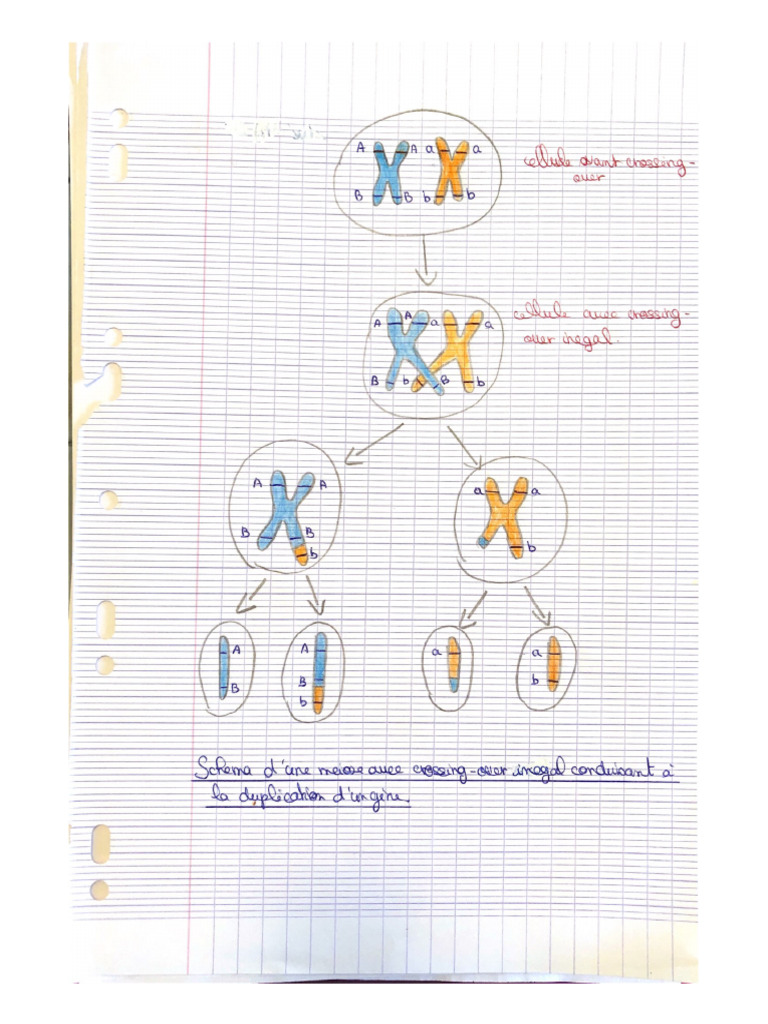 A A a a
B B b b
cellule avant crossing-
over
A A a a
B b B b
cellule avec crossing-
over inégal.
A A
B B
b
a a
b
A
B
A
B
b
a
a
b
Schéma d'une meiose avec crossing-over inegal conduisant à
la duplication d'un gène.